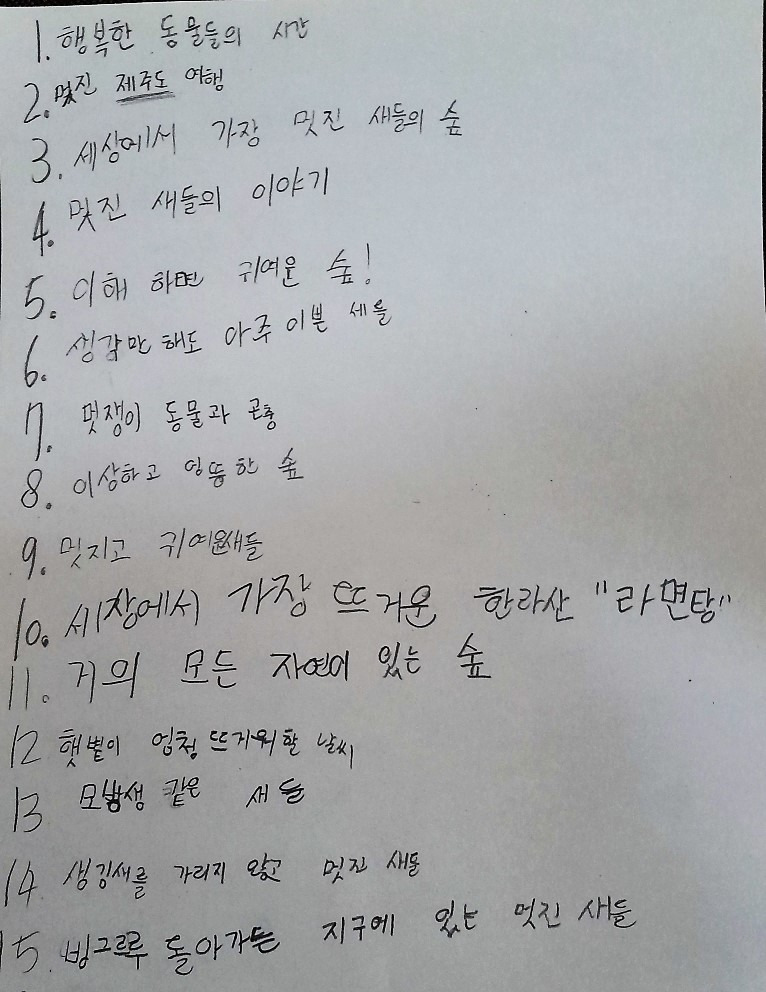 1. 행복한 동물들의 시간
2. 멋진 제주도 여행
3. 세상에서 가장 멋진 새들의 숲
4. 멋진 새들의 이야기
5. 이해 하면 귀여운 숲!
6. 생각만 해도 아주 이쁜 세들
7. 멋쟁이 동물과 곤충
8. 이상하고 엉뚱한 숲
9. 멋지고 귀여운새들
10. 세창에서 가장 뜨거운 한라산 "라면탕"
11. 거의 모든 자연이 있는 숲
12 햇볕이 엄청 뜨거워할 날씨
13 모범생 같은 새들
14. 생김새를 가리지 않고 멋진 새들
15. 빙그르루 돌아가는 지구에 있는 멋진 새들